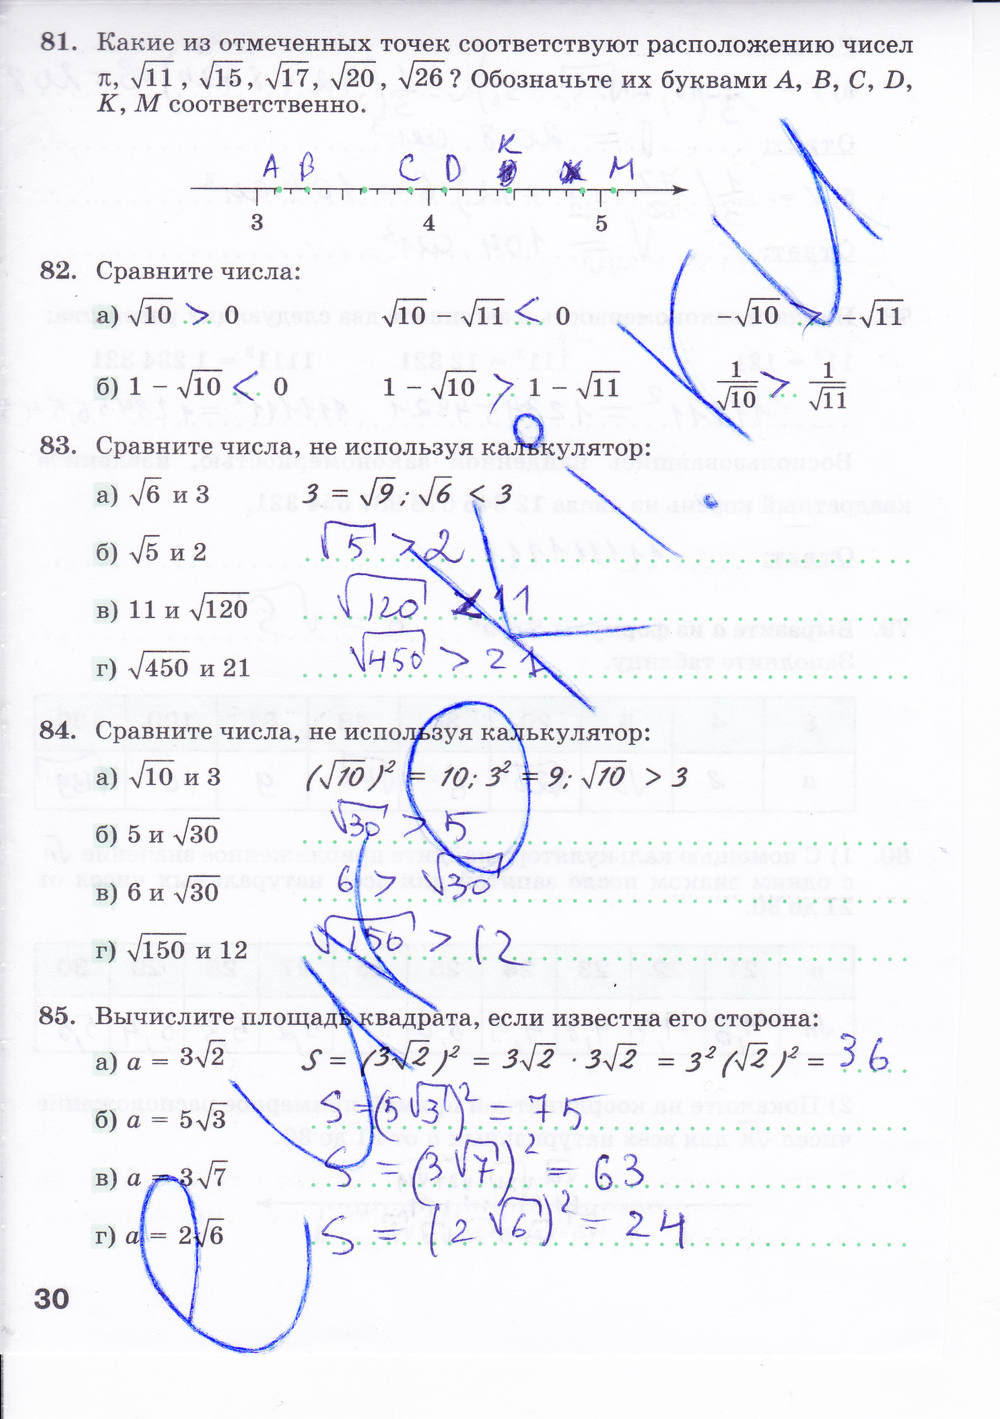 81. Какие из отмеченных точек соответствуют расположению чисел
π, √11, √15, √17, √20, √26? Обозначьте их буквами A, B, C, D,
K, M соответственно.
K
A B C D M
3 4 5
82. Сравните числа:
а) √10 > 0 √10 − √11 < 0 √10 > −√11
б) 1 − √10 < 0 1 − √10 > 1 − √11 1/√10 > 1/√11
83. Сравните числа, не используя калькулятор:
а) √6 и 3 3 = √9; √6 < 3
б) √5 и 2 √5 > 2
в) 11 и √120 √120 < 11
г) √450 и 21 √450 > 21
84. Сравните числа, не используя калькулятор:
а) √10 и 3 (√10)² = 10; 3² = 9; √10 > 3
б) 5 и √30 √30 > 5
в) 6 и √30 6 > √30
г) √150 и 12 √150 > 12
85. Вычислите площадь квадрата, если известна его сторона:
а) a = 3√2 S = (3√2)² = 3√2 · 3√2 = 3²(√2)² = 36
б) a = 5√3 S = (5√3)² = 75
в) a = 3√7 S = (3√7)² = 63
г) a = 2√6 S = (2√6)² = 24
30